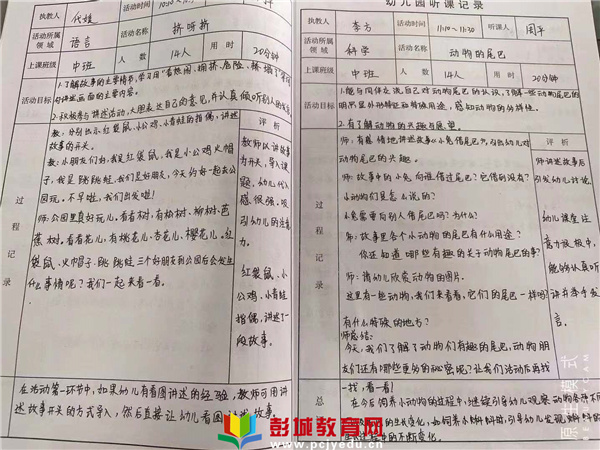 执教人 代娃 活动时间 10:10～
活动所属领域 语言 活动名称 挤呀挤
上课班级 中班 人数 14人 用时 20分钟
活动目标
1.了解故事的主要情节，学习用"看热闹、拥挤、危险、
句讲述画面的主要内容。
2.积极参与讲述活动，大胆表达自己的意见，并认真倾听别人的
过程记录
教：分别出示红袋鼠、小公鸡、小青蛙的指偶，讲述
故事的开头。
教：小朋友们好，我是红袋鼠，我是小公鸡火帽
子，我是跳跳蛙，我们是好朋友，今天约好一起去公
园玩。不早啦，我们出发啦！
师：公园里真好玩儿，看看树，有杨树、柳树、芭
蕉树。看看花儿，有桃花儿、杏花儿、樱花儿。红
袋鼠、火帽子、跳跳蛙三个好朋友到公园后会发生
什么事情呢？我们一起来看一看。
评析
教师以讲故事
为开头，导入课
题，幼儿代入
感很强，吸
引幼儿的注意
力。
红袋鼠、小
公鸡、小青蛙
指偶，讲述了一
段故事。
在活动第一环节中，如果幼儿有看图讲述的经验，教师可用讲
述故事开头的方式导入，然后直接让幼儿看图讲述故事。
幼儿园听课记录
执教人 李方 活动时间 11:10～11:30 听课人 周平
活动所属领域 科学 活动名称 动物的尾巴
上课班级 中班 人数 14人 用时 20分钟
活动目标
1.能与同伴交流自己对动物尾巴的认识，了解一些动物尾巴的
明显外形特征和特殊用途，感知动物的多样性。
2.有了解动物的兴趣与愿望。
过程记录
师：有感情地讲述故事《小兔借尾巴》，引出幼儿对
动物尾巴的兴趣。
师：故事中的小兔向谁借过尾巴？它借的没有？
小动物们是怎么说的？
小兔需要向别人借尾巴吗？为什么？
师：故事里各个小动物的尾巴有什么用途？
你还知道哪些有趣的关于动物尾巴的事？
师：请幼儿欣赏动物的图片。
这里有一些动物，我们来看看，它们的尾巴一样吗？
有什么特殊的地方？
师总结：
今天，我们了解了动物们有趣的尾巴，动物朋
友们还有哪些更多的秘密呢？让我们活动后再找
一找，看一看！
评析
师讲述故事后
引发幼儿讨论。
幼儿课堂注
意力很集中，
能够认真听
讲并举手发
言。
总
在今后饲养小动物的过程中，继续引导幼儿观察动物各种不同
的生长变化，如饲养小蝌蚪时，引导幼儿发现
中的不断变化。
原生模式
彭城教育网
www.pcjyedu.cn